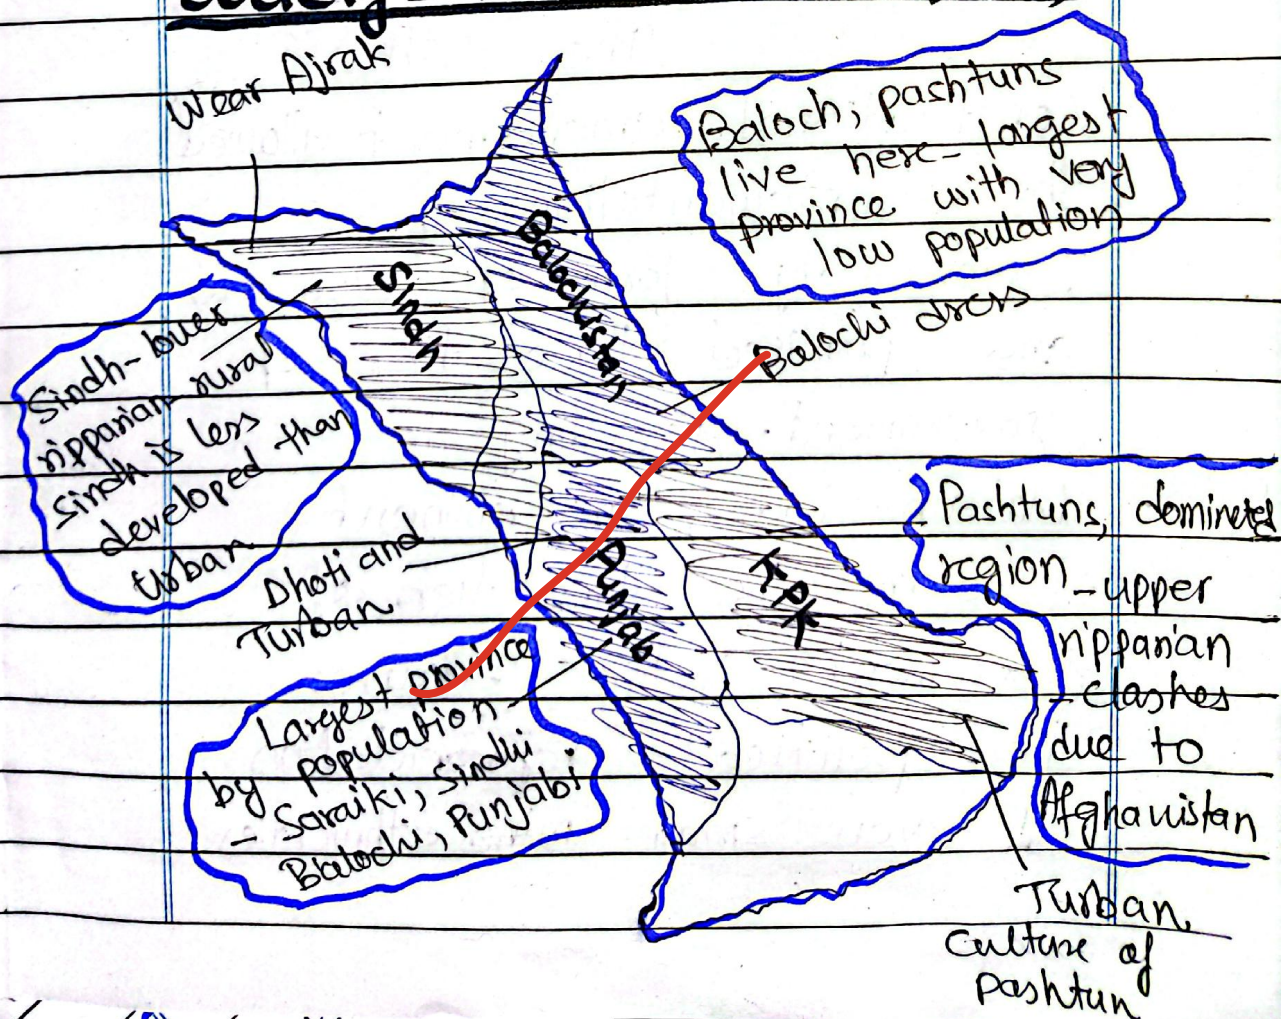 Wear Ajrak
Baloch, pashtuns
live here - largest
province with very
low population
Balochistan
Sindh
Balochi dress
Sindh - lower
ripparian rural
Sindh is less
developed than
Urban
Dhoti and
Turban
Punjab
KPK
Pashtuns, domineted
region - upper
ripparian
- clashes
due to
Afghanistan
Largest province
by population
- Saraiki, Sindhi
Balochi, Punjabi
Turban
Culture of
Pashtun